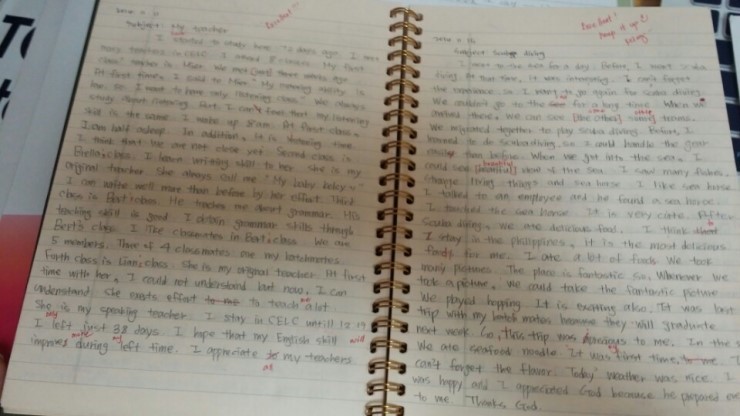 Subject: My teacher
I wanted to study here. 70 days ago. I met
many teachers in CELC. I attend 8 classes. My first
class' teacher is Miser. We met three weeks ago.
At first time, I said to Miser "My listening ability is
so I want to have only listening class." We always
study about listening. But I can't find that my listening
skill is the same. I wake up 8:00 am. At first class,
I am half asleep. In addition, it is listening time.
I think that we are not close yet. Second class is
class. I learn writing skill to her. She is my
original teacher. She always call me "My baby baby ♡"
I can write well more than before by her effort. Third
class is Bert class. He teaches me about grammar. His
teaching skill is good. I obtain grammar skills through
Bert's class. I like classmates in Bert class. We are
5 members. Three of 4 classmates are my batchmates.
Forth class is Lian class. She is my original teacher. At first
time with her, I could not understand but now, I can
understand. She exerts effort to teach a lot
She is my speaking teacher. I stay in CELC until 12.19
I left just 38 days. I hope that my English skill will
improve during my left time. I appreciate my teachers
Subject: Scuba diving
I went to the sea for a day. Before, I went
diving. At that time, it was interesting. I can't forget
the experience so I want to go again for scuba diving.
We couldn't go to the for a long time. When we
arrived there, we can see [the others] teams.
We migrated together to play scuba diving. Before, I
learned to do scuba diving, so I could handle the
than before. When we got into the sea, I
could see beautiful view of the sea. I saw many fishes,
strange living things and sea horse. I like sea horse
I talked to an employee and he found a sea horse.
I touched the sea horse. It is very cute. After
Scuba diving, we ate delicious food. I think
I stay in the philippines, it is the most delicious
foods for me. I ate a lot of foods. We took
many pictures. The place is fantastic so, Whenever we
took a picture, we could take the fantastic picture.
We played hopping. It is exciting also. It was last
trip with my batch mates because they will graduate
next week. So, this trip was to me. In the
We ate seafood noodle. It was my first time. I
can't forget the flavor. Today' weather was nice. I
was happy and I appreciated God because he prepared
to me. Thanks God.